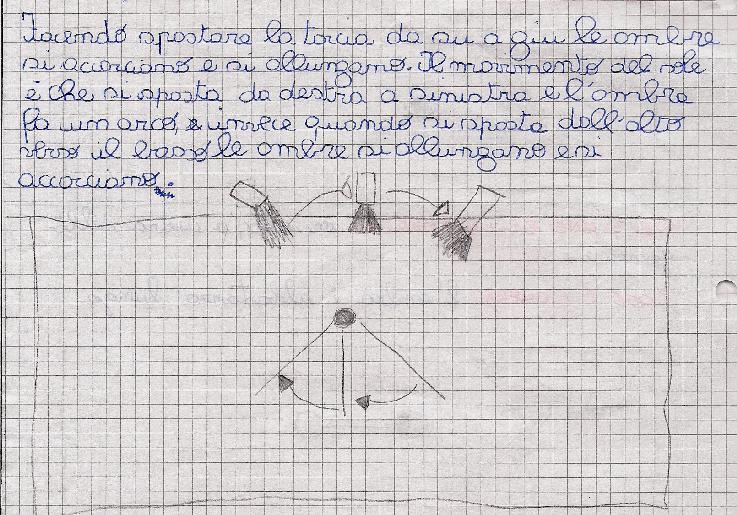 Facendo spostare la torcia da su a giu le ombre
si accorciano e si allungano. Il movimento del sole
è che si sposta da destra a sinistra e l'ombra
fa un arco, e invece quando si sposta dall'alto
verso il basso le ombre si allungano e si
accorciano.